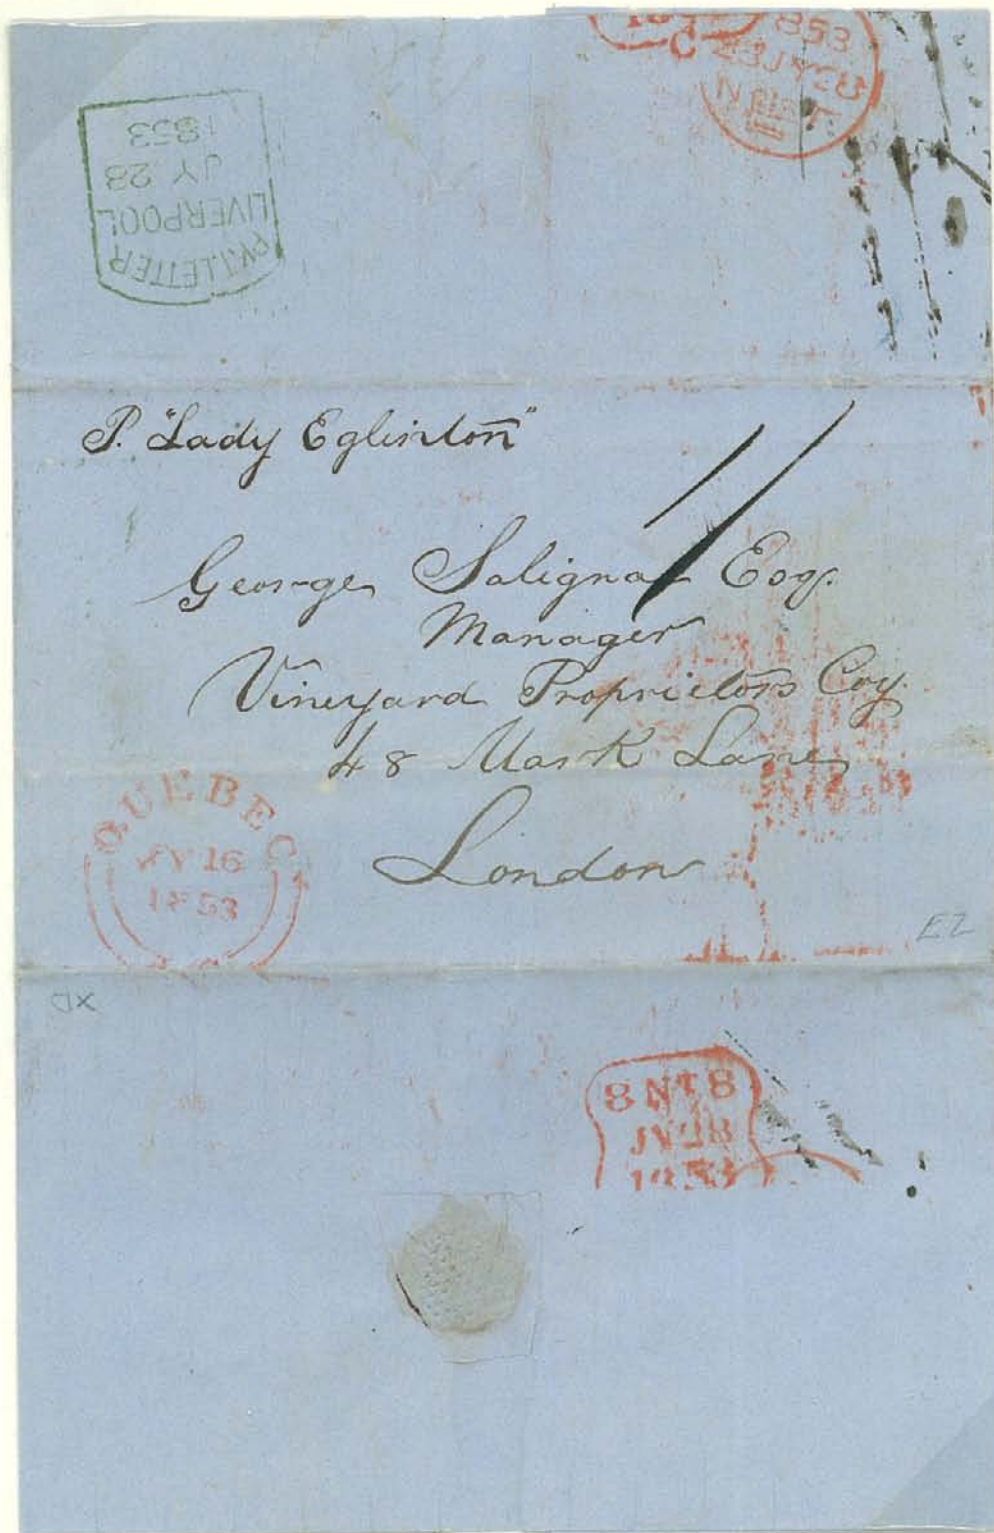 PKT. LETTER
LIVERPOOL
JY 28
1853
C
853
28 JY 28
P. "Lady Eglinton"
1/
George Salignac Esq.
Manager
Vineyard Proprietors Coy.
48 Mark Lane
London
QUEBEC
JY 16
1853
EZ
8 NT 8
JY 28
1853